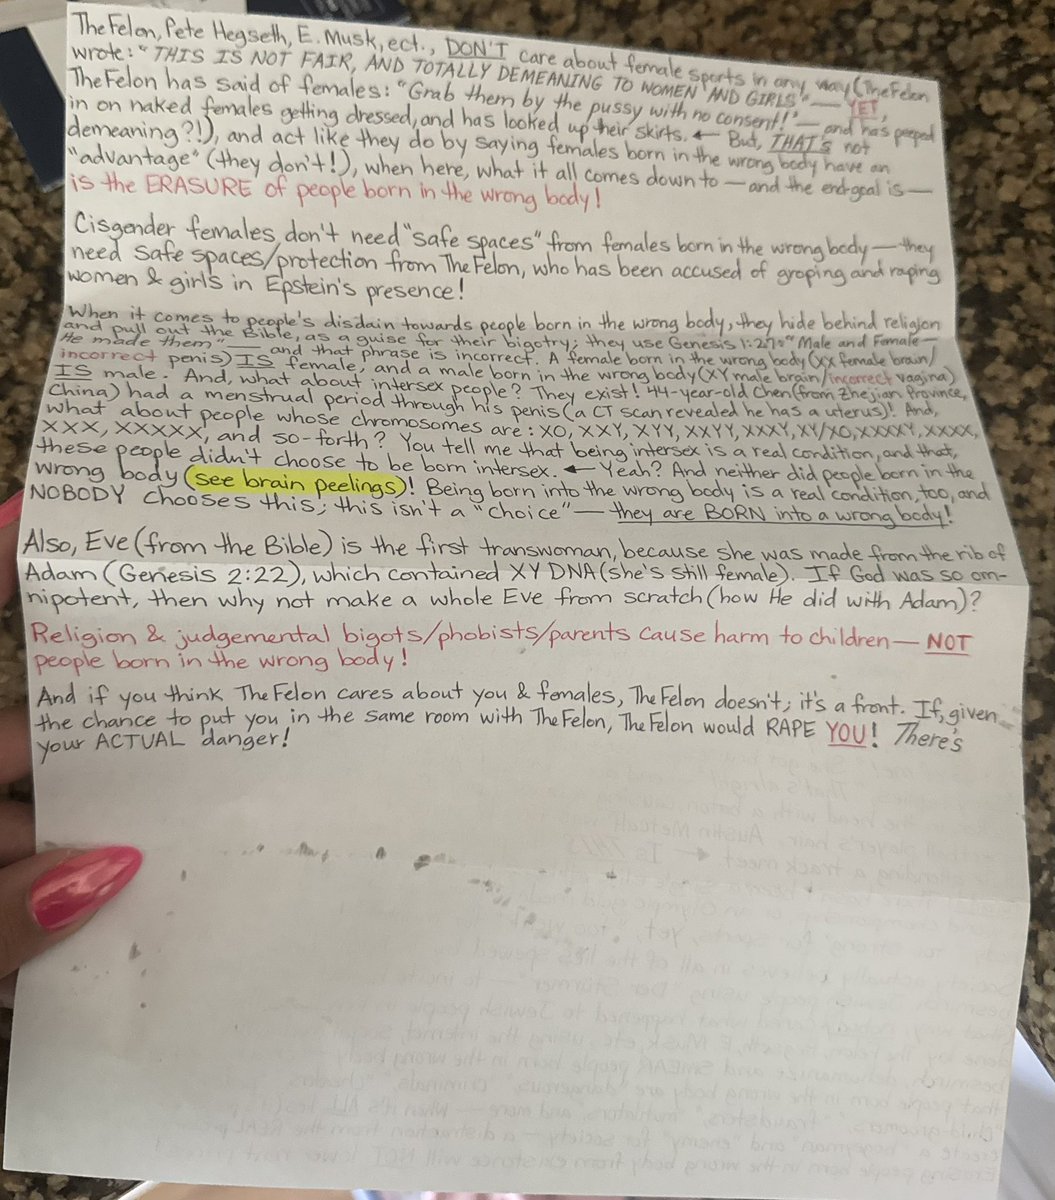 The Felon, Pete Hegseth, E. Musk, ect., DON'T care about female sports in any way (The Felon
wrote: "THIS IS NOT FAIR, AND TOTALLY DEMEANING TO WOMEN AND GIRLS" — YET,
The Felon has said of females: "Grab them by the pussy with no consent!" — and has peeped
in on naked females getting dressed, and has looked up their skirts. ← But, THAT'S not
demeaning?!), and act like they do by saying females born in the wrong body have an
"advantage" (they don't!), when here, what it all comes down to — and the end goal is —
is the ERASURE of people born in the wrong body!
Cisgender females don't need "safe spaces" from females born in the wrong body — they
need safe spaces/protection from The Felon, who has been accused of groping and raping
women & girls in Epstein's presence!
When it comes to people's disdain towards people born in the wrong body, they hide behind religion
and pull out the Bible, as a guise for their bigotry; they use Genesis 1:27 "Male and Female —
He made them" — and that phrase is incorrect. A female born in the wrong body (XX female brain/
incorrect penis) IS female, and a male born in the wrong body (XY male brain/incorrect vagina)
IS male. And, what about intersex people? They exist! 44-year-old Chen (from Zhejian Province,
China) had a menstrual period through his penis (a CT scan revealed he has a uterus)! And,
what about people whose chromosomes are: XO, XXY, XYY, XXYY, XXXY, XY/XO, XXXXY, XXXX,
XXX, XXXXX, and so-forth? You tell me that being intersex is a real condition, and that,
these people didn't choose to be born intersex. ← Yeah? And neither did people born in the
wrong body (see brain peelings)! Being born into the wrong body is a real condition, too, and
NOBODY chooses this; this isn't a "choice" — they are BORN into a wrong body!
Also, Eve (from the Bible) is the first transwoman, because she was made from the rib of
Adam (Genesis 2:22), which contained XY DNA (she's still female). If God was so om-
nipotent, then why not make a whole Eve from scratch (how He did with Adam)?
Religion & judgemental bigots/phobists/parents cause harm to children — NOT
people born in the wrong body!
And if you think The Felon cares about you & females, The Felon doesn't; it's a front. If, given
the chance to put you in the same room with The Felon, The Felon would RAPE YOU! There's
your ACTUAL danger!